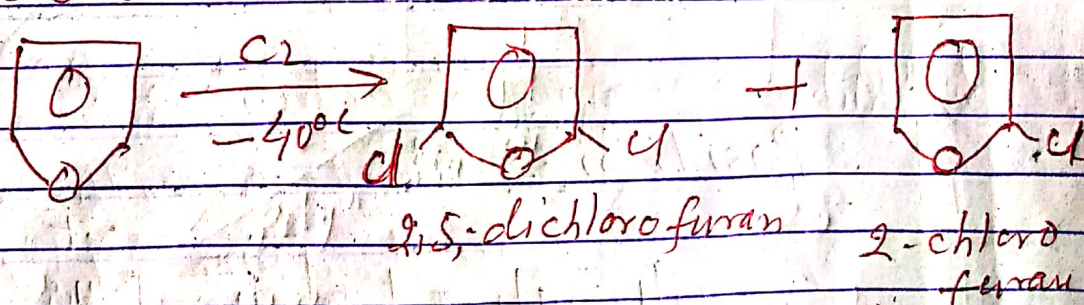 C2
-40°C
O
Cl
O
Cl
O
Cl
2,5,-dichlorofuran
2-chloro
furan